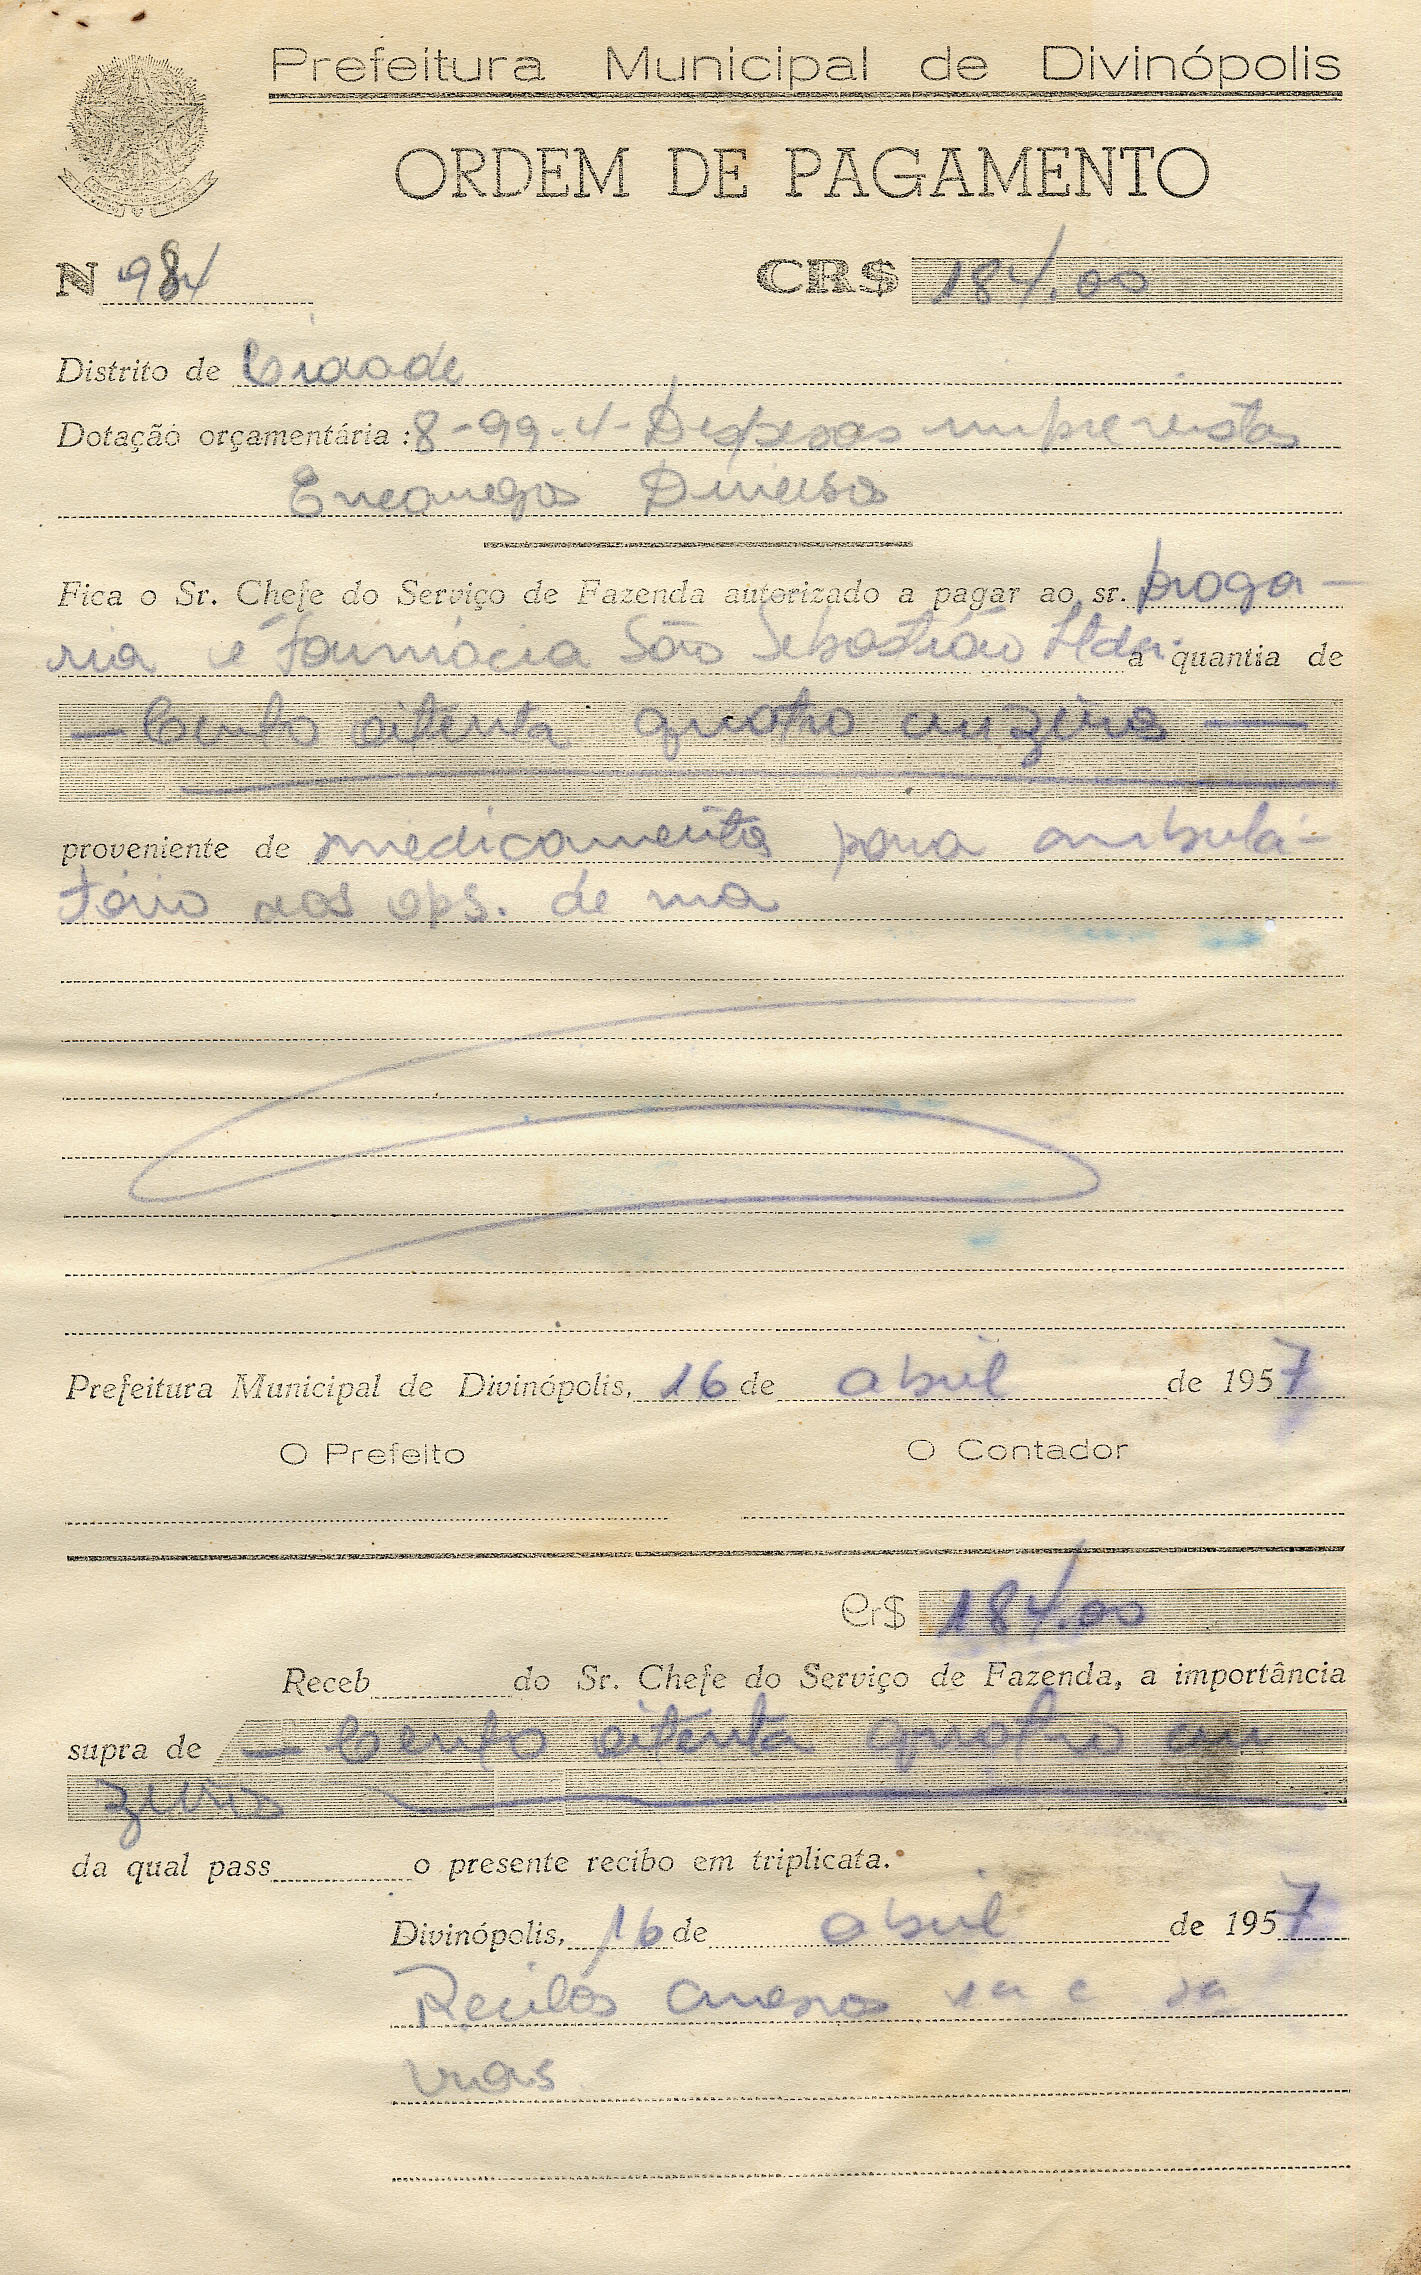 Prefeitura Municipal de Divinópolis
ORDEM DE PAGAMENTO
N 984 CR$ 184,00
Distrito de Cidade
Dotação orçamentária: 8-99-4- Despesas imprevistas
Encargos Diversos
Fica o Sr. Chefe do Serviço de Fazenda autorizado a pagar ao sr. Droga-
ria e Farmácia São Sebastião Ltda. a quantia de
— Cento oitenta quatro cruzeiros —
proveniente de medicamentos para ambula-
tório aos ops. de
Prefeitura Municipal de Divinópolis, 16 de abril de 1957
O Prefeito O Contador
Cr$ 184,00
Receb do Sr. Chefe do Serviço de Fazenda, a importância
supra de — Cento oitenta quatro cru
zeiros
da qual pass o presente recibo em triplicata.
Divinópolis, 16 de abril de 1957
Recibos anexos 1a e 2a
vias